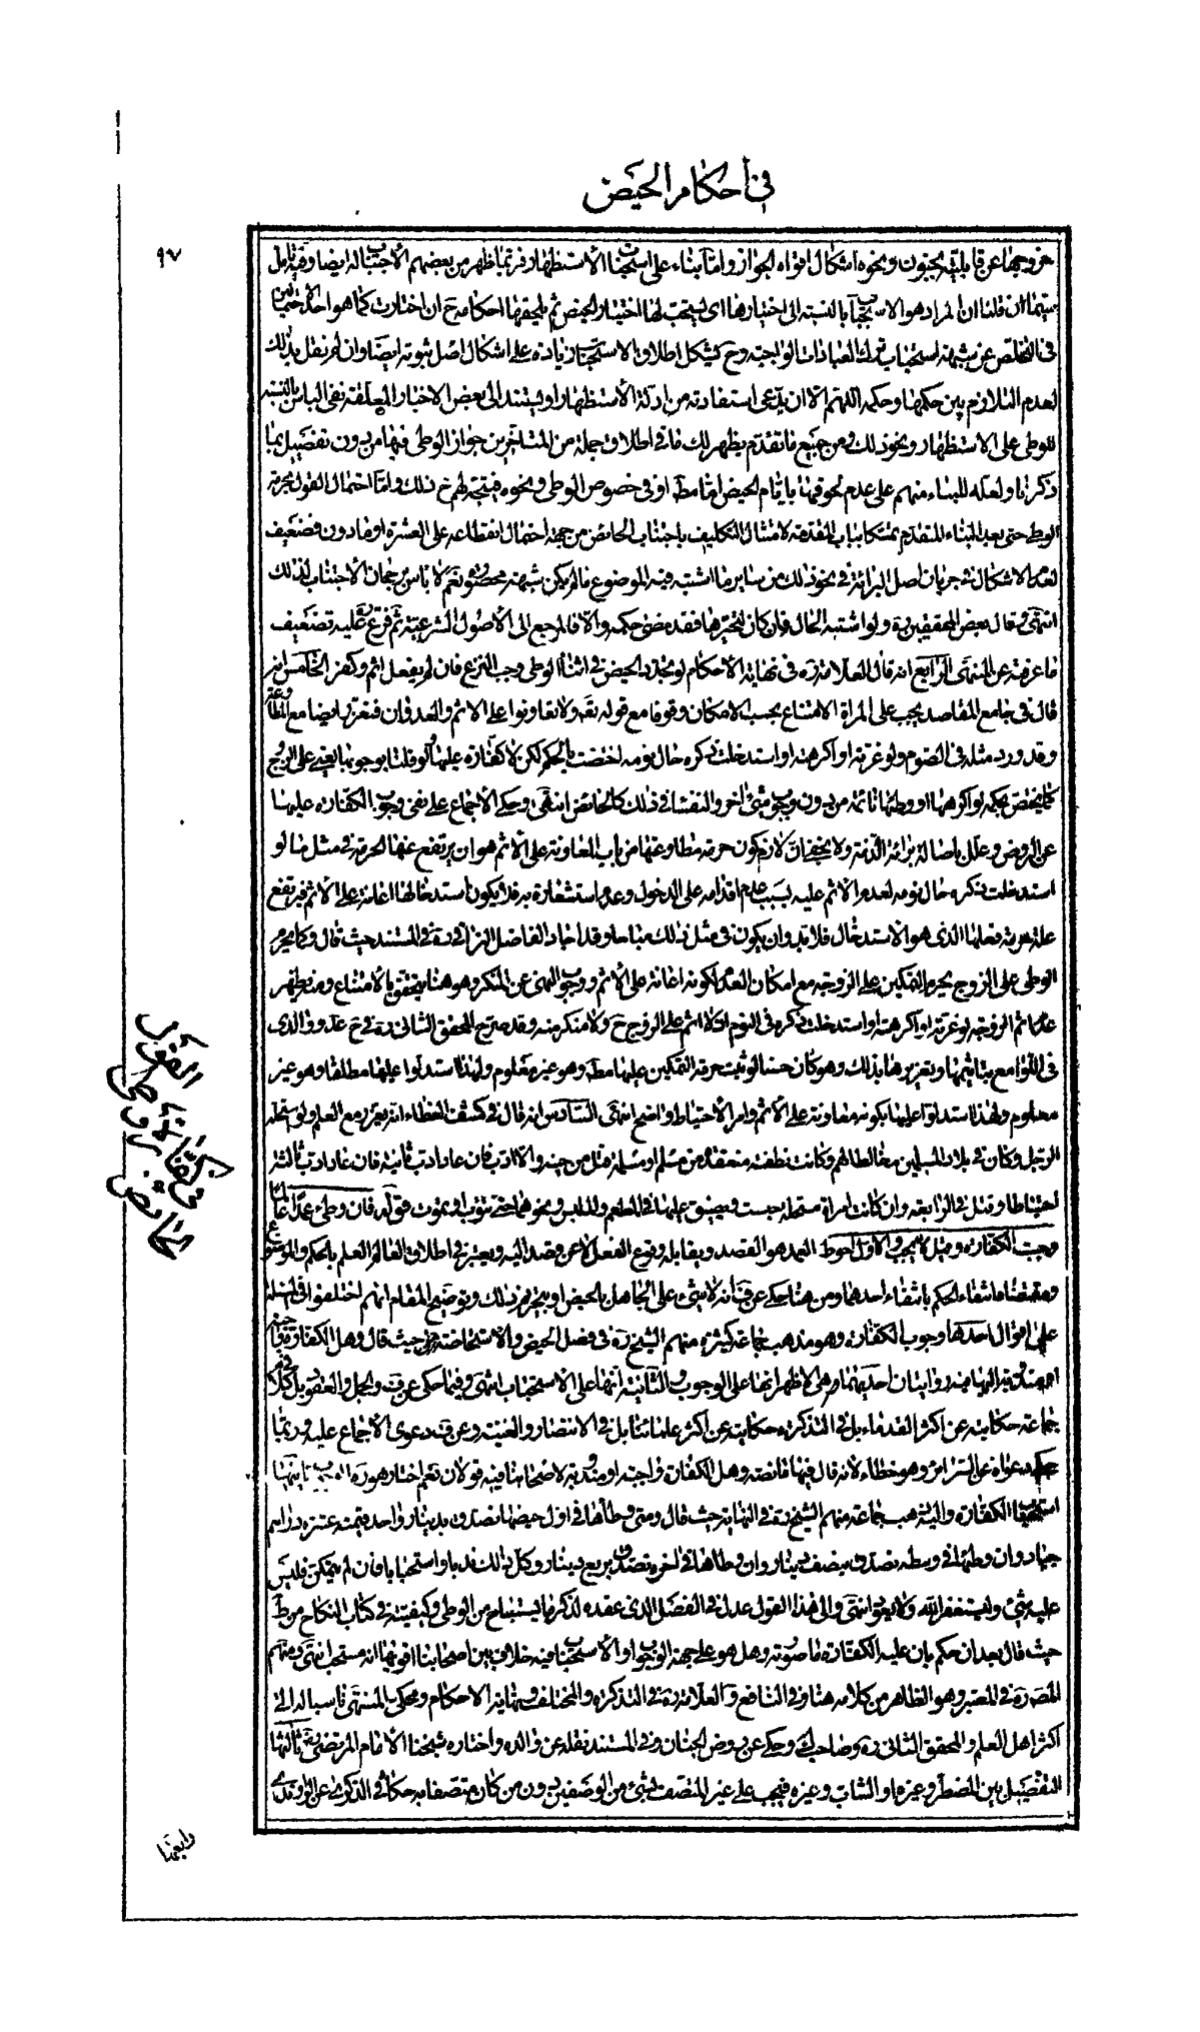 في أحكام الحيض
٩٧
خروجها عن قابليته لجنون ونحوه اشكال اقواه الجواز وامّا بناء على استحباب الأستظهار فربّما ظهر من بعضهم الأجتناب له ايضا وفيه تامل
سيّما ان قلنا ان المراد هو الاستحباب بالنسبة الى اختيارها اى يستحب لها اختيار الحيض ثم يلحقها احكامه ح ان اختارت كما هو احد الأحتمالين
في التخلّص عن شبهة استحباب ترك العبادات الواجبة وح يشكل اطلاق الاستحباب زيادة على اشكال اصل ثبوته ايضا وان لم نقل بذلك
لعدم التلازم بين حكمها وحكمه اللهمّ الّا ان يدّعى استفادته من ادلّة الأستظهار او يستند الى بعض الاخبار المعلّقة نفى الباس بالنسبة
للوطى على الاستظهار ونحو ذلك ومن جميع ما تقدم يظهر لك ما في اطلاق جملة من المتاخرين جواز الوطى فيها من دون تفصيل بما
ذكرنا ولعله للبناء منهم على عدم لحوقها بايام الحيض امّا مطلقا او في خصوص الوطى ونحوه فيتجه لهم ح ذلك وامّا احتمال القول بحرمة
الوطى حتى بعد البناء المتقدم تمسّكا بباب المقدمة لامتثال التكليف باجتناب الحائض من جهة احتمال انقطاعه على العشرة او ما دون فضعيف
لعدم الاشكال في جريان اصل البرائة في نحو ذلك من ساير ما اشتبه فيه الموضوع ما لم يكن شبهة محصورة نعم لا باس برجحان الأجتناب لذلك
انتهى وقال بعض المحققين ره ولو اشتبه الحال فان كان لتحيّرها فقد مضى حكمه والّا فالمرجع الى الأصول الشرعيّة ثم فرّع عليه تضعيف
ما عرفته عن المنتهى الرّابع انه قال العلامة ره في نهاية الأحكام لو تجدد الحيض في اثناء الوطى وجب النزع فان لم يفعل اثم وكفر الخامس انه
قال في جامع المقاصد يجب على المراة الامتناع بحسب الامكان وقوفا مع قوله تعه ولا تعاونوا على الاثم والعدوان فتعزر ايضا مع المطاوعة
وقد ورد مثله في الصوم ولو غرّته او اكرهته او استدخلت ذكره حال نومه اختصت بالحكم لكن لا كفّارة عليها ولو قلنا بوجوبها لغيره على الزوج
كما يختص بحكمه لو اكرهها او وطئها نائمة من دون وجوب شئ اخر والنفساء في ذلك كالحائض انتهى وحكى الأجماع على نفى وجوب الكفارة عليها
عن الروض وعلّل باصالة برائة الذّمة ولا يخفى انّ لازم كون حرمة مطاوعتها من باب المعاونة على الأثم هو ان يرتفع عنها الحرمة في مثل ما لو
استدخلت ذكره حال نومه لعدم الاثم عليه بسبب عدم اقدامه على الدخول وعدم استشعاره به فلا يكون استدخالها اعانة على الأثم فيرتفع
علة حرمة فعلها الذى هو الاستدخال فلا بد وان يكون في مثل ذلك مباحا وقد اجاد الفاضل النراقى ره في المستند حيث قال وكما يحرم
الوطى على الزوج يحرم التمكين على الزوجة مع امكان العدم لكونه اعانة على الأثم ووجوب النهى عن المنكر وهو هنا يتحقق بالأمتناع ومنه يظهر
عدم اثم الزوجة لو غرّته او اكرهته او استدخلت ذكره في النوم اذ لا اثم على الزوج ح ولا منكر منه وقد صرح المحقق الثانى ره في ح عد والذى
في اللوامع بتاثيمها وتعزيرها بذلك وهو كان حسنا لو ثبت حرمة التمكين عليها مطلقا وهو غير معلوم ولهذا استدلّوا عليها مطلقا وهو غير
معلوم ولهذا استدلّوا عليها بكونه معاونة على الأثم وامر الأحتياط واضح انتهى السّادس انه قال في كشف الغطاء انه يعزّر مع العلم ولو استحله
الرجل وكان في بلاد المسلمين مخالطا لهم وكانت نطفته منعقدة من مسلم او مسلمة قتل من حينه والّا ادب فان عاد ادب ثانية فان عاد ادب ثالثة
احتياطا وقتل في الرّابعة وان كانت امراة مستحلة حبست وضيّق عليها في المطعم والملبس ونحوهما حتى تتوب او تموت قوله فان وطى عمدا عالما
وجبت الكفارة وقيل لا تجب والأول احوط العمد هو القصد ويقابله وقوع الفعل لا عن قصد اليه ويعتبر في اطلاق العالم العلم بالحكم والموضوع
ومقتضاه انتفاء الحكم بانتفاء احدهما ومن هنا حكى عن ف انه لا شئ على الجاهل بالحيض او بتحريمه ذلك وتوضيح المقام انهم اختلفوا في المسئلة
على اقوال احدها وجوب الكفارة وهو مذهب جماعة كثيرة منهم الشيخ ره في فصل الحيض والاستحاضة حيث قال وهل الكفارة واجبة
ام مندوب اليها فيه روايتان احديهما وهى الاظهر انها على الوجوب والثانية انها على الاستحباب انتهى وفيما حكى عن ف والجمل والعقود بل في كلام
جماعة حكايته عن اكثر القدماء بل في التذكرة حكايته عن اكثر علمائنا بل في الانتصار والغنية وعن ف دعوى الأجماع عليه وربما
حكى دعواه عن السّرائر وهو خطاء لانه قال فيها ما نصه وهل الكفارة واجبة او مندوبة لاصحابنا فيه قولان نعم اختار هو ره ثانيها
استحباب الكفارة واليه ذهب جماعة منهم الشيخ ره في النهاية حيث قال ومتى وطاها في اول حيضها تصدق بدينار واحد قيمته عشرة دراهم
جياد وان وطئها في وسطه تصدق بنصف دينار وان وطاها في اخره تصدق بربع دينار وكل ذلك ندبا واستحبابا فان لم يتمكن فليس
عليه شئ وليستغفر الله ولا يعود انتهى والى هذا القول عدل في الفصل الذى عقده لذكر ما يستباح من الوطى وكيفيته في كتاب النكاح من ط
حيث قال بعد ان حكم بان عليه الكفارة ما صورته وهل هو على جهة الوجوب او الأستحباب فيه خلاف بين اصحابنا اقويهما انه مستحب انتهى ومنهم
المصره في المعتبر وهو الظاهر من كلامه هنا وفي النافع والعلامة ره في التذكرة والمختلف ونهاية الاحكام ومحكى المنتهى ناسبا له الى
اكثر اهل العلم والمحقق الثانى ره وصاحب ك وحكى عن روض الجنان وفي المستند نقله عن والده واختاره شيخنا الأمام المرتضى ره ثالثها
التفصيل بين المضطر وغيره او الشاب وغيره فيجب على غير المتصف بشئ من الوصفين دون من كان متصفا به حكاه في الذكرى عن الراوندى
القول
في كفارة وطى
الحائض
رابعها